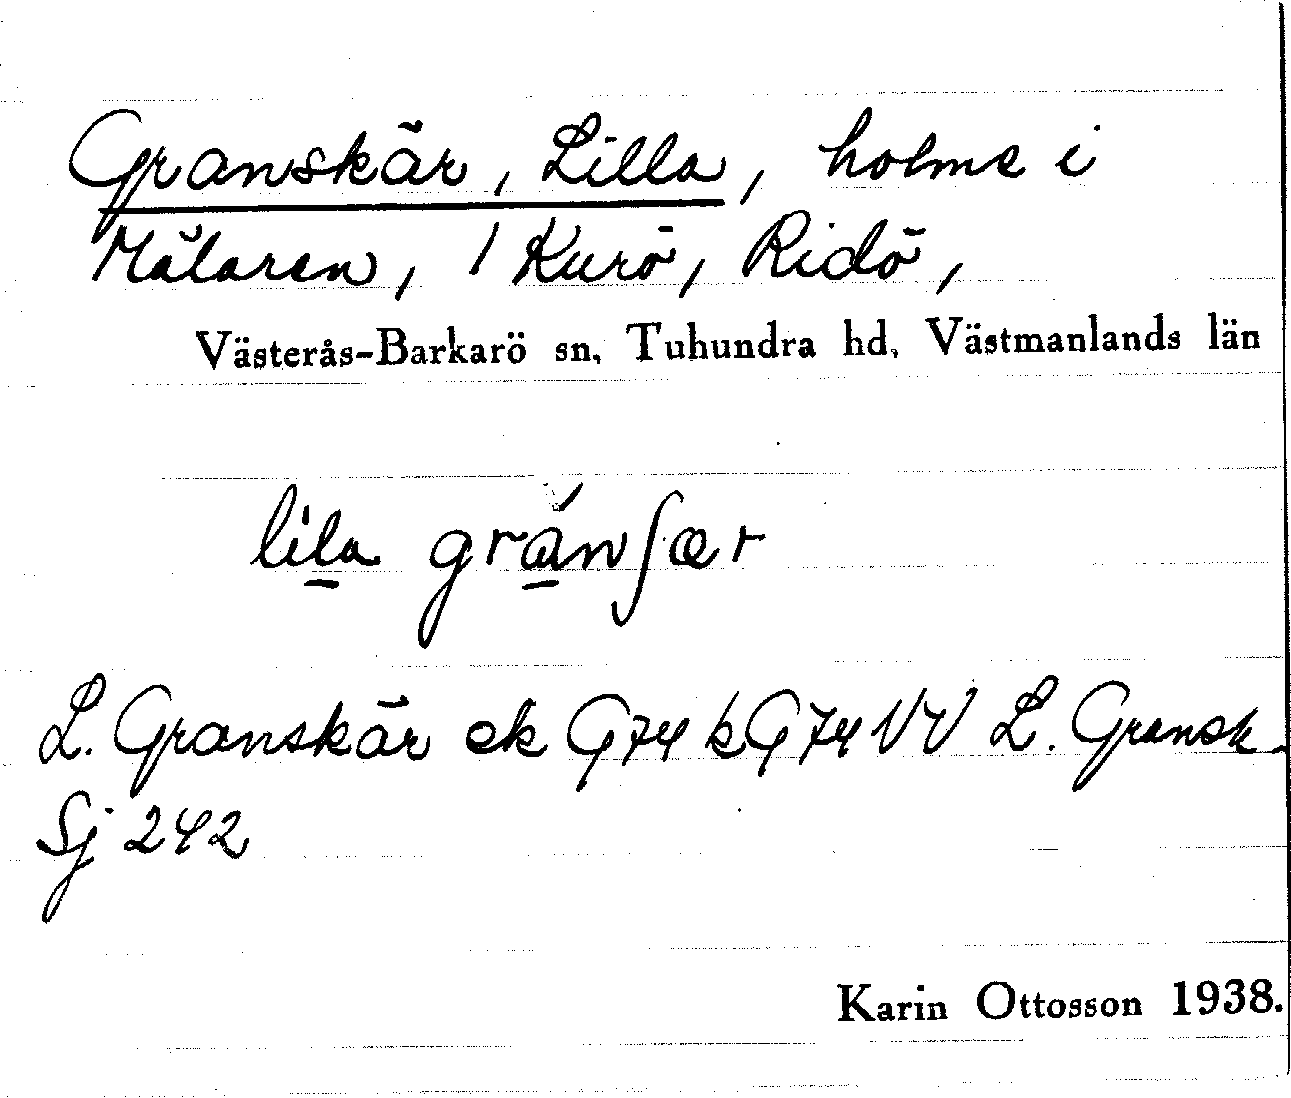 Granskär, Lilla, holme i
Mälaren, 1 Kurö, Ridö,
Västerås-Barkarö sn, Tuhundra hd, Västmanlands län
lila gránʃær
L. Granskär ek G74 k G74 VV L. Gransk.
Sj 242
Karin Ottosson 1938.